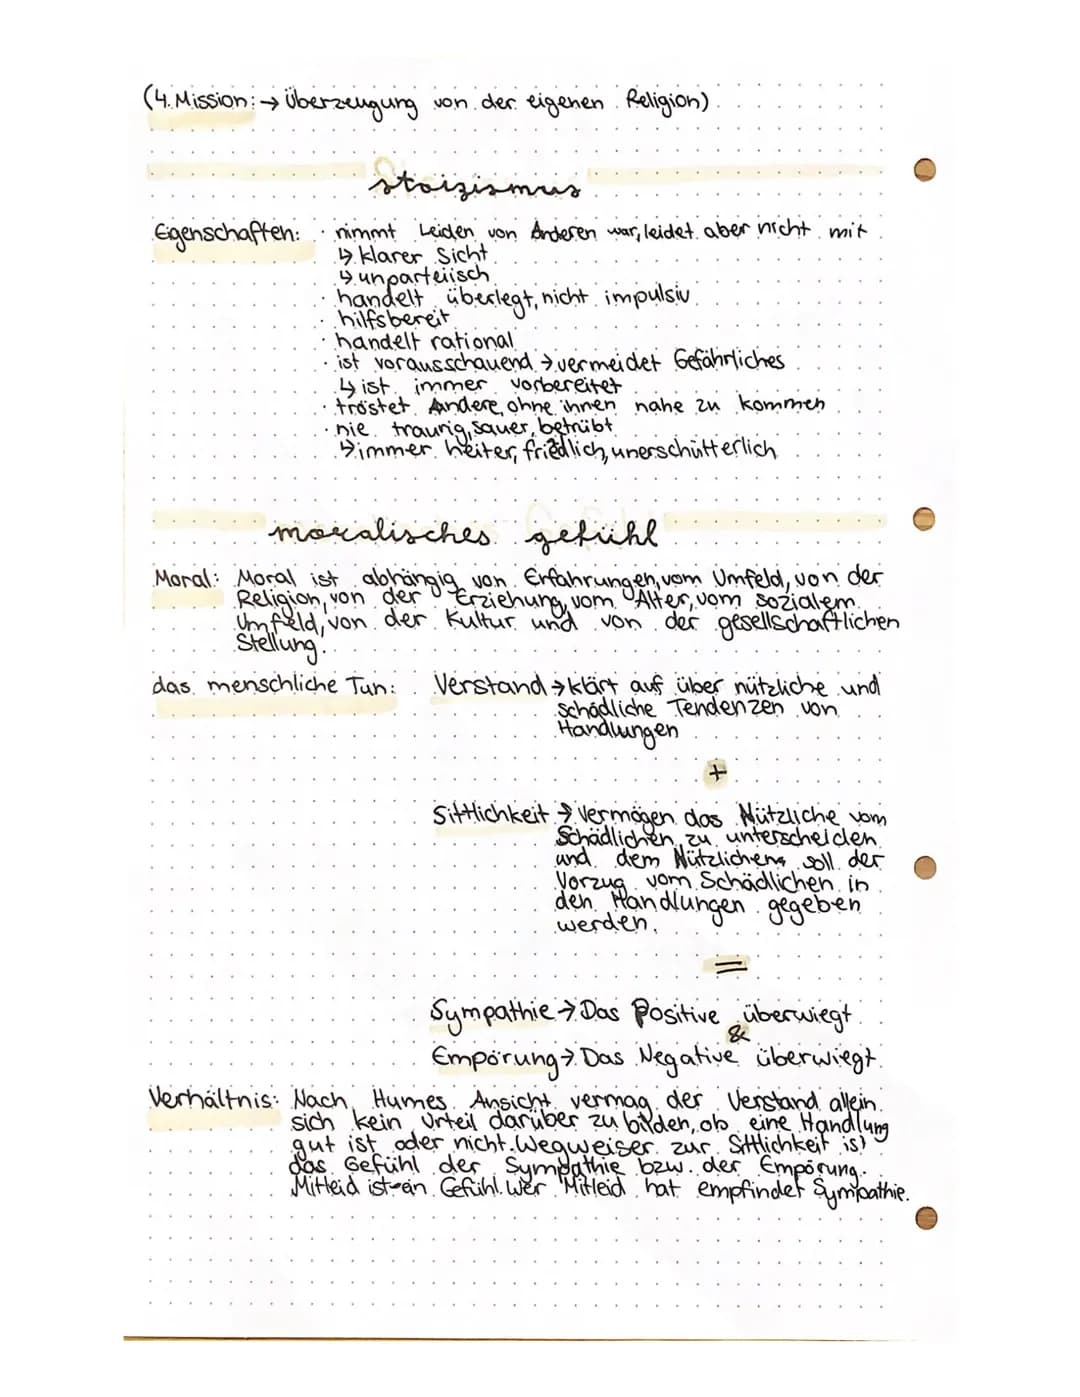 (4. Mission: → Überzeugung von der eigenen Religion)
stoizismus
Eigenschaften: · nimmt Leiden von Anderen war, leidet aber nicht mit
↳ klarer Sicht
↳ unparteiisch
· handelt überlegt, nicht impulsiv
· hilfsbereit
· handelt rational
· ist vorausschauend → vermeidet Gefährliches
↳ ist immer vorbereitet
· tröstet Andere, ohne ihnen nahe zu kommen
· nie traurig, sauer, betrübt
↳ immer heiter, friedlich, unerschütterlich
moralisches gefühl
Moral: Moral ist abhängig von Erfahrungen, vom Umfeld, von der
Religion, von der Erziehung, vom Alter, vom sozialem
Umfeld, von der Kultur und von der gesellschaftlichen
Stellung.
das menschliche Tun: Verstand → klärt auf über nützliche und
schädliche Tendenzen von
Handlungen
+
Sittlichkeit → Vermögen das Nützliche vom
Schädlichen zu unterscheiden
und dem Nützlichens soll der
Vorzug vom Schädlichen in
den Handlungen gegeben
werden.
=
Sympathie → Das Positive überwiegt
&
Empörung → Das Negative überwiegt
Verhältnis: Nach Humes Ansicht vermag der Verstand allein
sich kein Urteil darüber zu bilden, ob eine Handlung
gut ist oder nicht. Wegweiser zur Sittlichkeit ist
das Gefühl der Sympathie bzw. der Empörung.
Mitleid ist ein Gefühl. Wer Mitleid hat empfindet Sympathie.